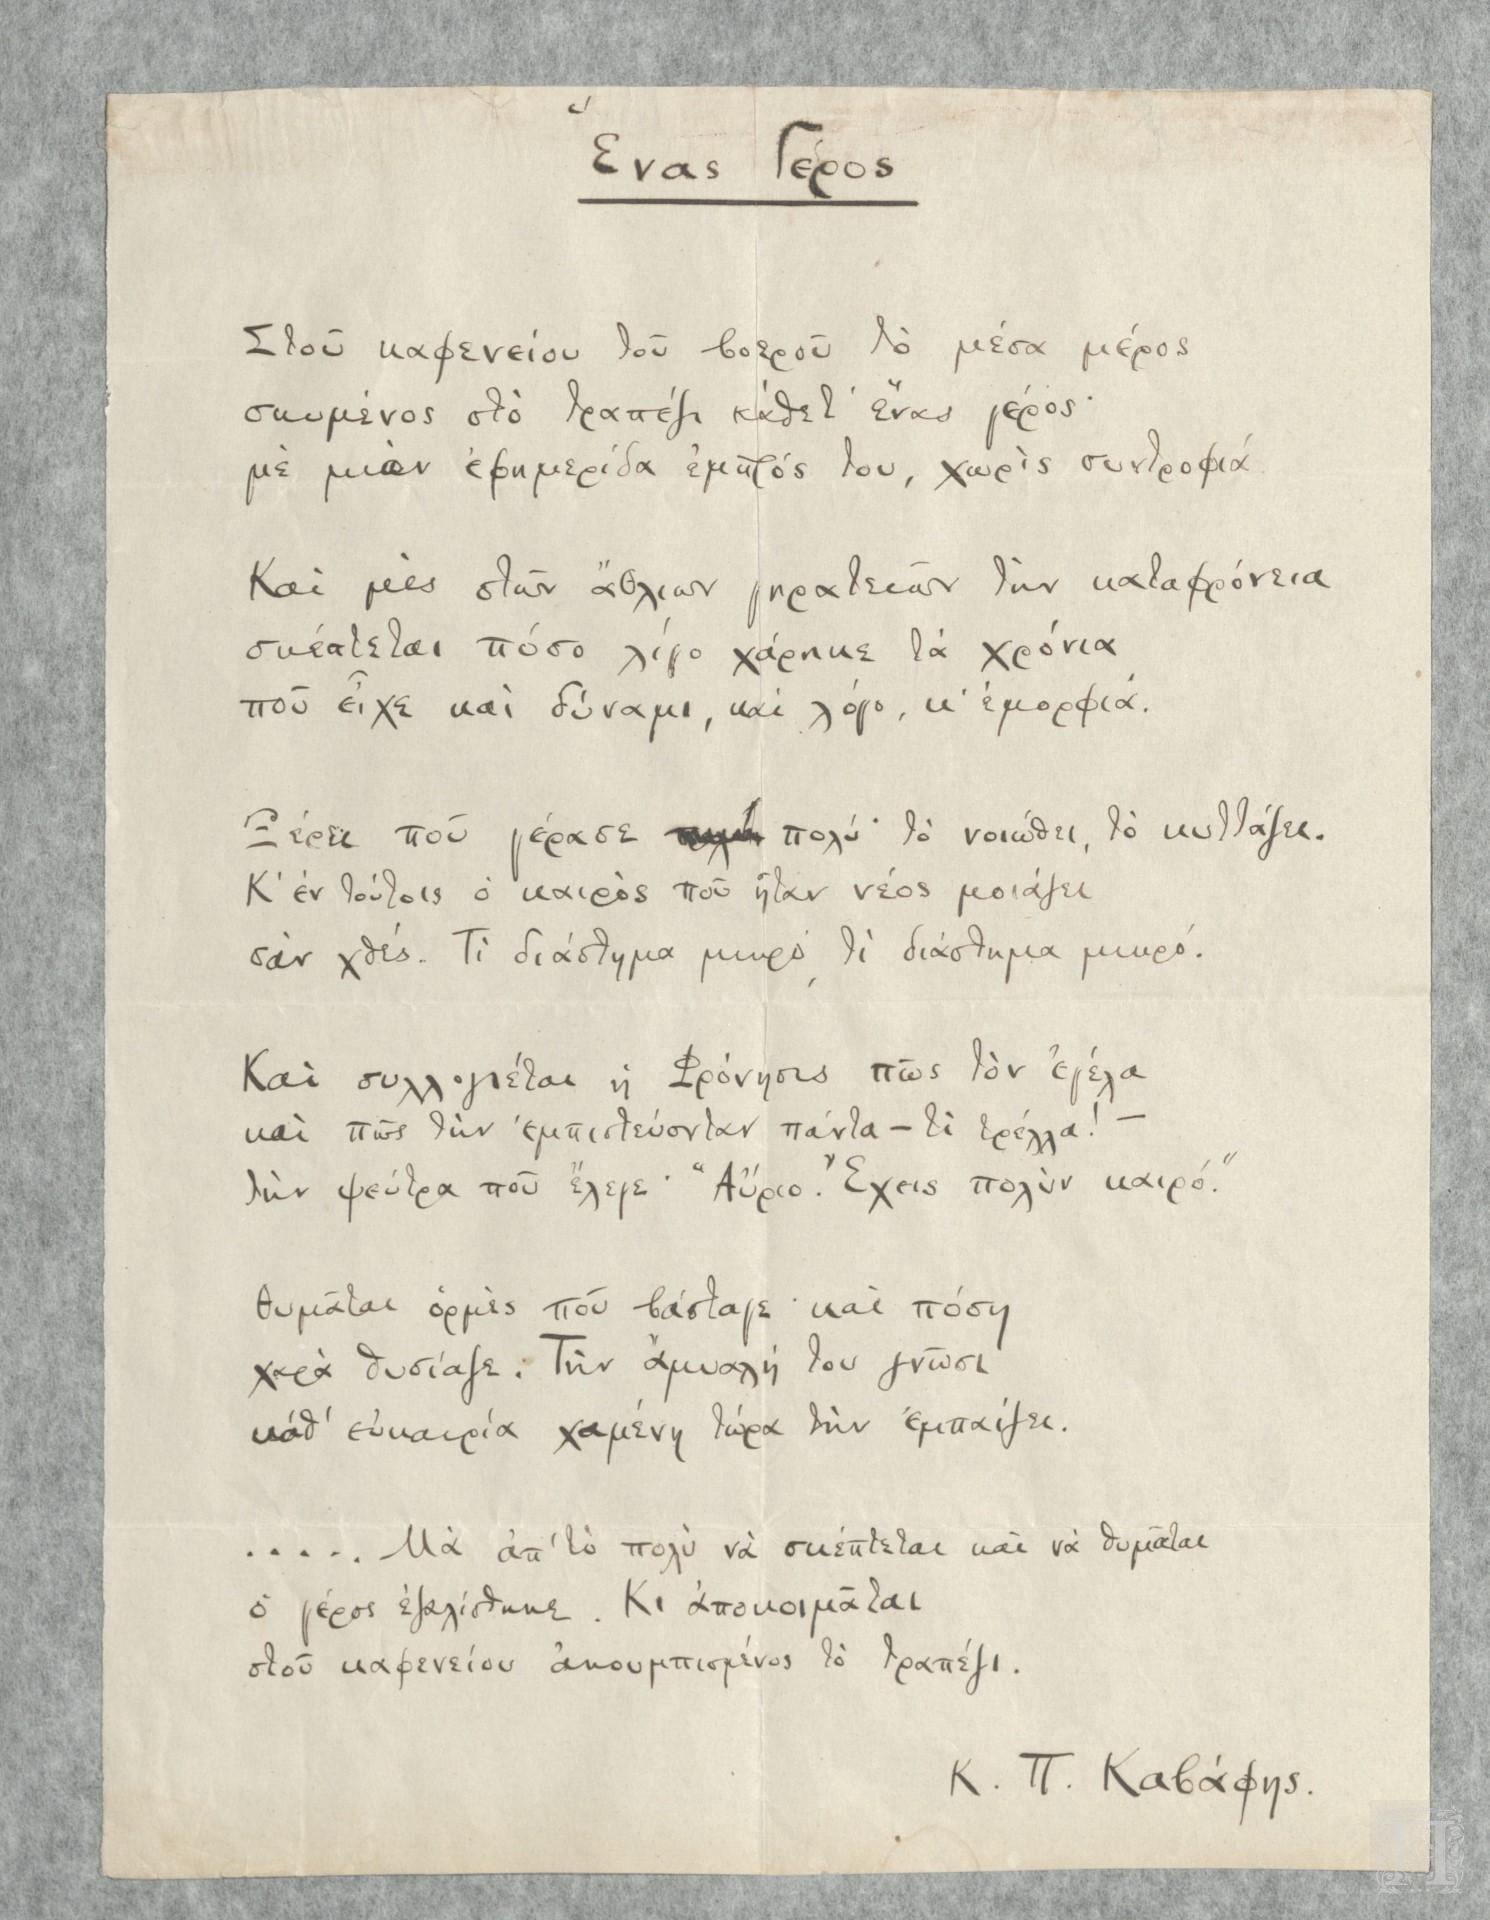 Ἕνας Γέρος
Στοῦ καφενείου τοῦ βοεροῦ τὸ μέσα μέρος
σκυμένος στὸ τραπέζι κάθετ' ἕνας γέρος·
μὲ μιὰν ἐφημερίδα ἐμπρός του, χωρὶς συντροφιά.
Καὶ μὲς στῶν ἄθλιων γηρατειῶν τὴν καταφρόνεια
σκέπτεται πόσο λίγο χάρηκε τὰ χρόνια
ποῦ εἶχε καὶ δύναμι, καὶ λόγο, κ' ἐμορφιά.
Ξέρει ποῦ γέρασε πολύ· τὸ νοιώθει, τὸ κυττάζει.
Κ' ἐν τούτοις ὁ καιρὸς ποῦ ἦταν νέος μοιάζει
σὰν χθές. Τὶ διάστημα μικρό, τὶ διάστημα μικρό.
Καὶ συλλογιέται ἡ Φρόνησις πῶς τὸν ἐγέλα
καὶ πῶς τὴν ἐμπιστεύονταν πάντα – τὶ τρέλλα! –
τὴν ψεύτρα ποῦ ἔλεγε· "Αὔριο. Ἔχεις πολὺν καιρό."
Θυμᾶται ὁρμὲς ποῦ βάσταγε· καὶ πόση
χαρὰ θυσίαζε. Τὴν ἄμυαλή του γνῶσι
κάθ' εὐκαιρία χαμένη τώρα τὴν ἐμπαίζει.
..... Μὰ ἀπ' τὸ πολὺ νὰ σκέπτεται καὶ νὰ θυμᾶται
ὁ γέρος ἐζαλίσθηκε. Κι ἀποκοιμᾶται
στοῦ καφενείου ἀκουμπισμένος τὸ τραπέζι.
Κ. Π. Καβάφης.